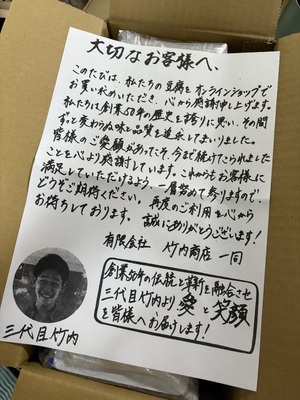 大切なお客様へ、
このたびは、私たちの豆腐をオンラインショップで
お買い求めいただき、心から感謝申し上げます。
私たちは創業50年の歴史を誇りに思い、その間
ずっと変わらぬ味と品質を追求してまいりました。
皆様のご愛顧があってこそ、今まで続けてこられました
ことを心より感謝しています。これからもお客様に
満足していただけるよう、一層努めて参りますので、
どうぞご期待ください。再度のご利用を心から
お待ちしております。誠にありがとうございます!
有限会社 竹内商店 一同
創業50年の伝統と革新を融合させ
三代目竹内より愛と笑顔
を皆様へお届けします!
三代目竹内